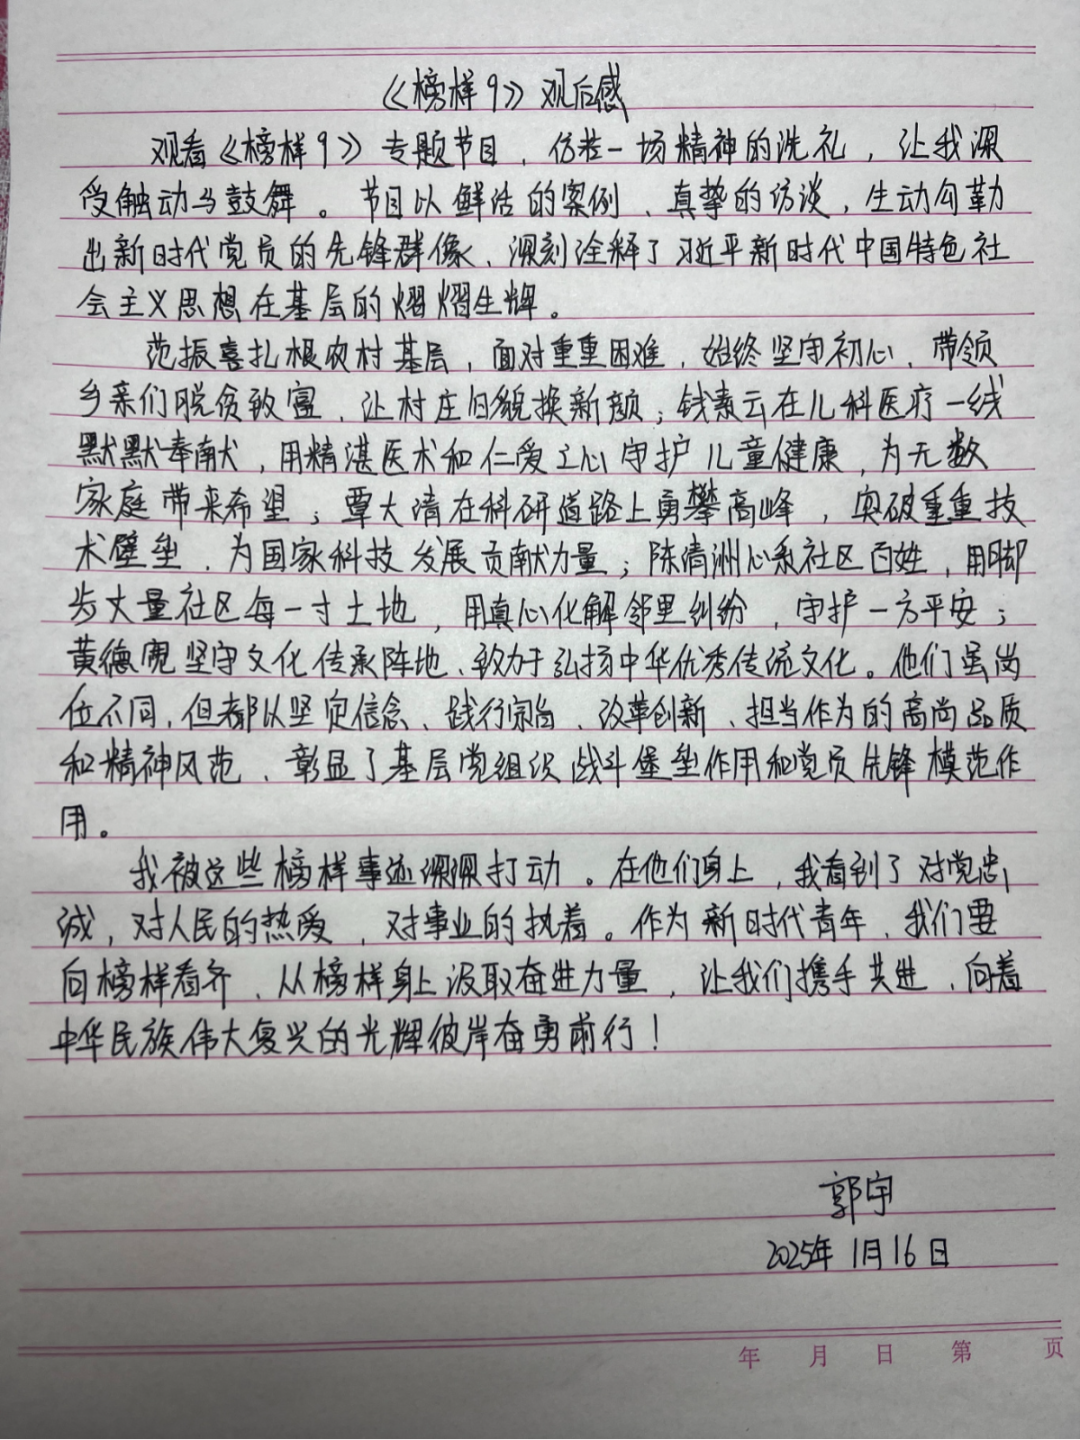 《榜样9》观后感
观看《榜样9》专题节目，仿若一场精神的洗礼，让我深
受触动与鼓舞。节目以鲜活的案例、真挚的访谈，生动勾勒
出新时代党员的先锋群像、深刻诠释了习近平新时代中国特色社
会主义思想在基层的熠熠生辉。
范振喜扎根农村基层，面对重重困难，始终坚守初心、带领
乡亲们脱贫致富、让村庄旧貌换新颜；钱素云在儿科医疗一线
默默奉献，用精湛医术和仁爱之心守护儿童健康，为无数
家庭带来希望；覃大清在科研道路上勇攀高峰，突破重重技
术壁垒、为国家科技发展贡献力量；陈清洲心系社区百姓，用脚
步丈量社区每一寸土地，用真心化解邻里纠纷，守护一方平安；
黄德宽坚守文化传承阵地、致力于弘扬中华优秀传统文化。他们虽岗
位不同，但都以坚定信念、践行宗旨、改革创新、担当作为的高尚品质
和精神风范、彰显了基层党组织战斗堡垒作用和党员先锋模范作
用。
我被这些榜样事迹深深打动。在他们身上，我看到了对党忠
诚，对人民的热爱，对事业的执着。作为新时代青年，我们要
向榜样看齐、从榜样身上汲取奋进力量，让我们携手共进、向着
中华民族伟大复兴的光辉彼岸奋勇前行！
郭宇
2025年1月16日
年 月 日 第 页